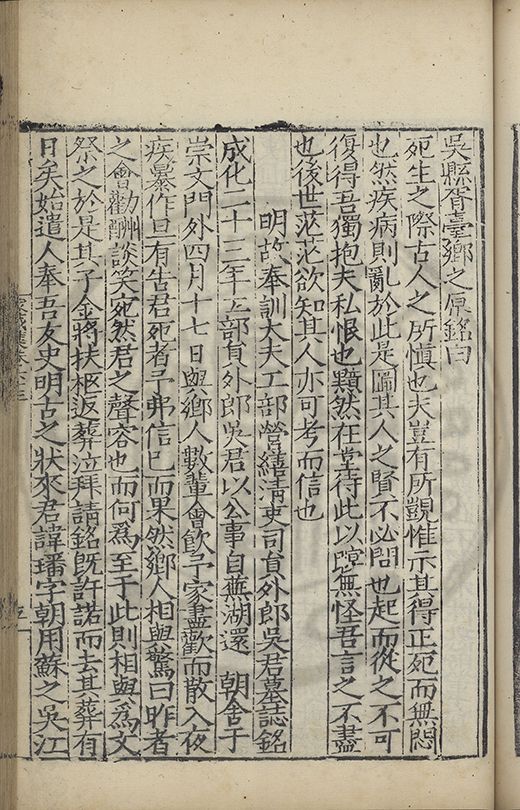 吳縣胥臺鄉之原銘曰
死生之際古人之所愼也夫豈有所覬惟示其得正死而無悶
也然疾病則亂於此是圖其人之賢不必問也起而從之不可
復得吾獨抱夫私恨也顯然在堂待此以瞑無怪吾言之不盡
也後世茫茫欲知其人亦可考而信也
明故奉訓大夫工部營繕淸吏司員外郎吳君墓誌銘
成化二十三年工部員外郎吳君以公事自蕪湖還 朝舍于
崇文門外四月十七日與鄉人數輩會飮予家盡歡而散入夜
疾暴作旦有告君死者予弗信已而果然鄉人相與驚曰昨者
之會勸酬談笑宛然君之聲容也而何爲至于此則相與爲文
祭之於是其子金將扶柩返葬泣拜請銘旣許諾而去其葬有
日矣始遣人奉吾友史明古之狀來君諱璠字朝用蘇之吳江